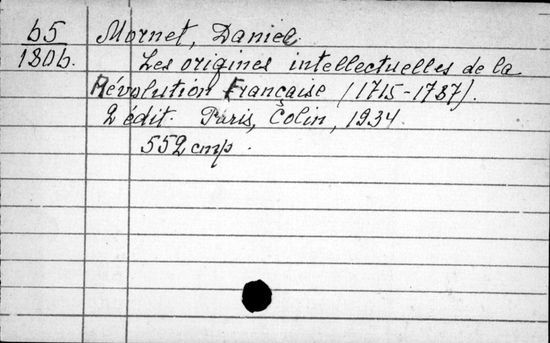 b5 Mornet, Daniel.
1806. Les origines intellectuelles de la
Révolution Française (1715-1787).
2 édit. Paris, Colin, 1934.
552 стр.